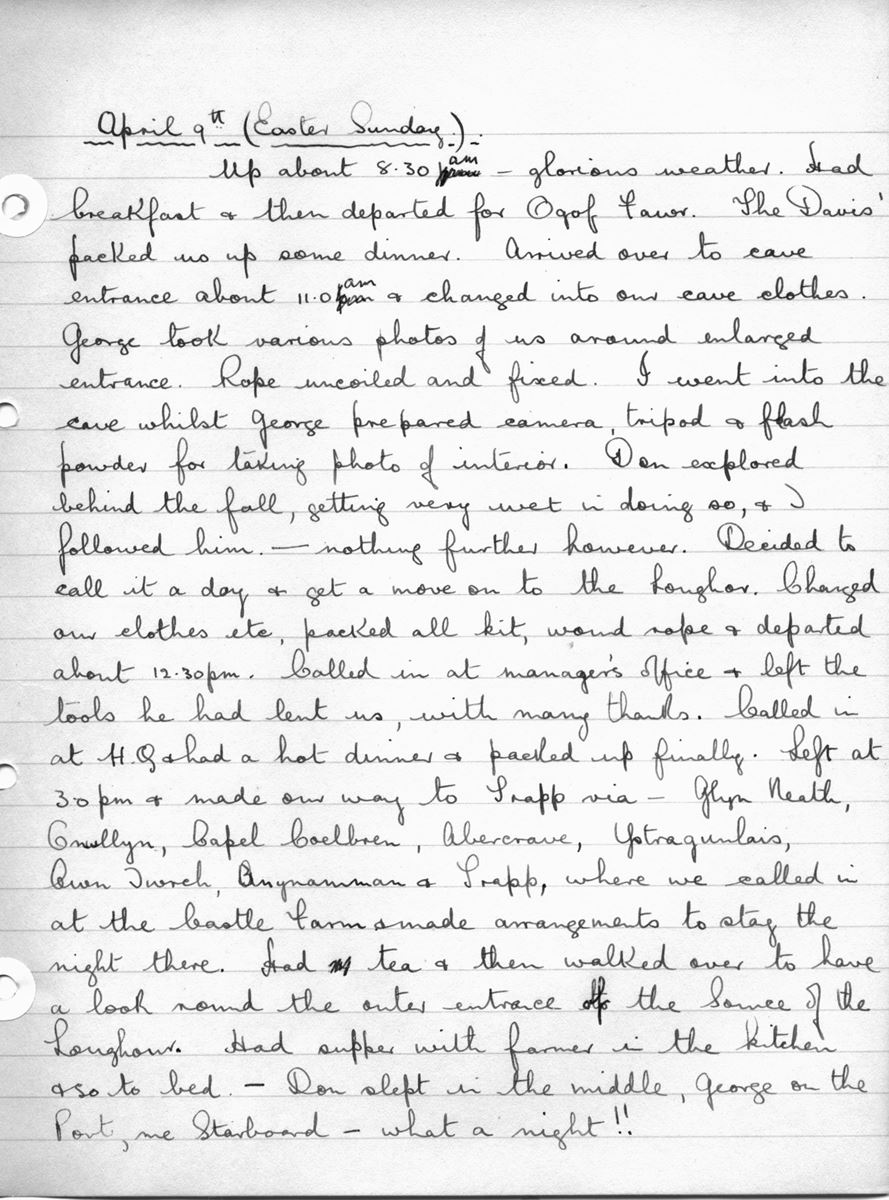 April 9th (Easter Sunday.).
Up about 8.30 am – glorious weather. Had
breakfast & then departed for Ogof Fawr. The Davis'
packed us up some dinner. Arrived over to cave
entrance about 11.0 am & changed into our cave clothes.
George took various photos of us around enlarged
entrance. Rope uncoiled and fixed. I went into the
cave whilst George prepared camera, tripod & flash
powder for taking photo of interior. Don explored
behind the fall, getting very wet in doing so, & I
followed him. — nothing further however. Decided to
call it a day & get a move on to the Loughor. Changed
our clothes etc, packed all kit, wound rope & departed
about 12.30pm. Called in at manager's office & left the
tools he had lent us, with many thanks. Called in
at H.Q & had a hot dinner & packed up finally. Left at
3 0 pm & made our way to Trapp via – Glyn Neath,
Capel Coelbren, Abercrave, Ystragunlais,
Cwm Twrch, & Trapp, where we called in
at the Castle Farm & made arrangements to stay the
night there. Had tea & then walked over to have
a look round the outer entrance of the Source of the
Loughour. Had supper with farmer in the kitchen
& so to bed. – Don slept in the middle, George on the
Port, me Starboard – what a night!!